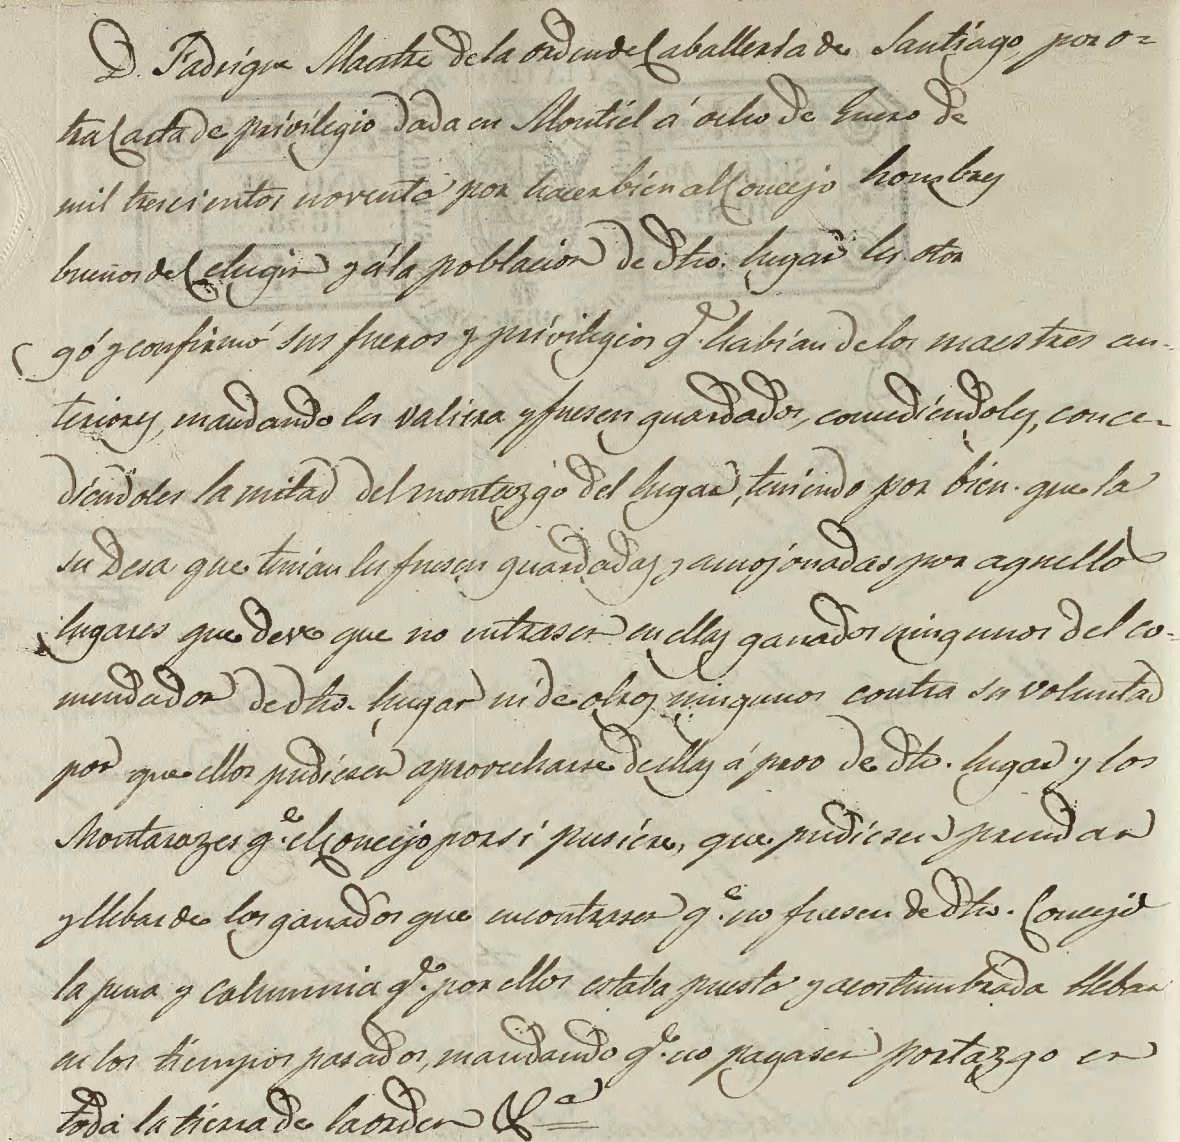 D. Fadrique Maestre de la orden de Caballeria de Santiago, por o=
tra Carta de privilegio dada en Montiel á ocho de Enero de
mil trescientos noventa por hacer bien al Concejo hombres
buenos del Cehegin y á la poblacion de dho. lugar les otor
gó y confirmó sus fueros y privilegios q.e habian de los maestres an-
teriores, mandando les valiera y fuesen guardados, concediendoles, conce-
diendoles la mitad del montazgo del lugar, teniendo por bien que la
su desa que tenian les fuesen guardadas y amojonadas por aquello
lugares que deve que no entrasen en ellas ganados ningunos del co-
mendador de dho. lugar ni de otros ningunos contra su voluntad
por que ellos pudiesen aprovecharse dellas á proo de dho. lugar y los
Montarazes q.e el Concejo por si pusiere, que pudiesen prendar
y llebar de los ganados que encontrasen q.e no fuesen de dho. Concejo
la pena y calumnia q.e por ellos estaba puesta y acostumbrada llebar
en los tiempos pasados, mandando q.e no pagasen portazgo en
toda la tierra de la orden &.a